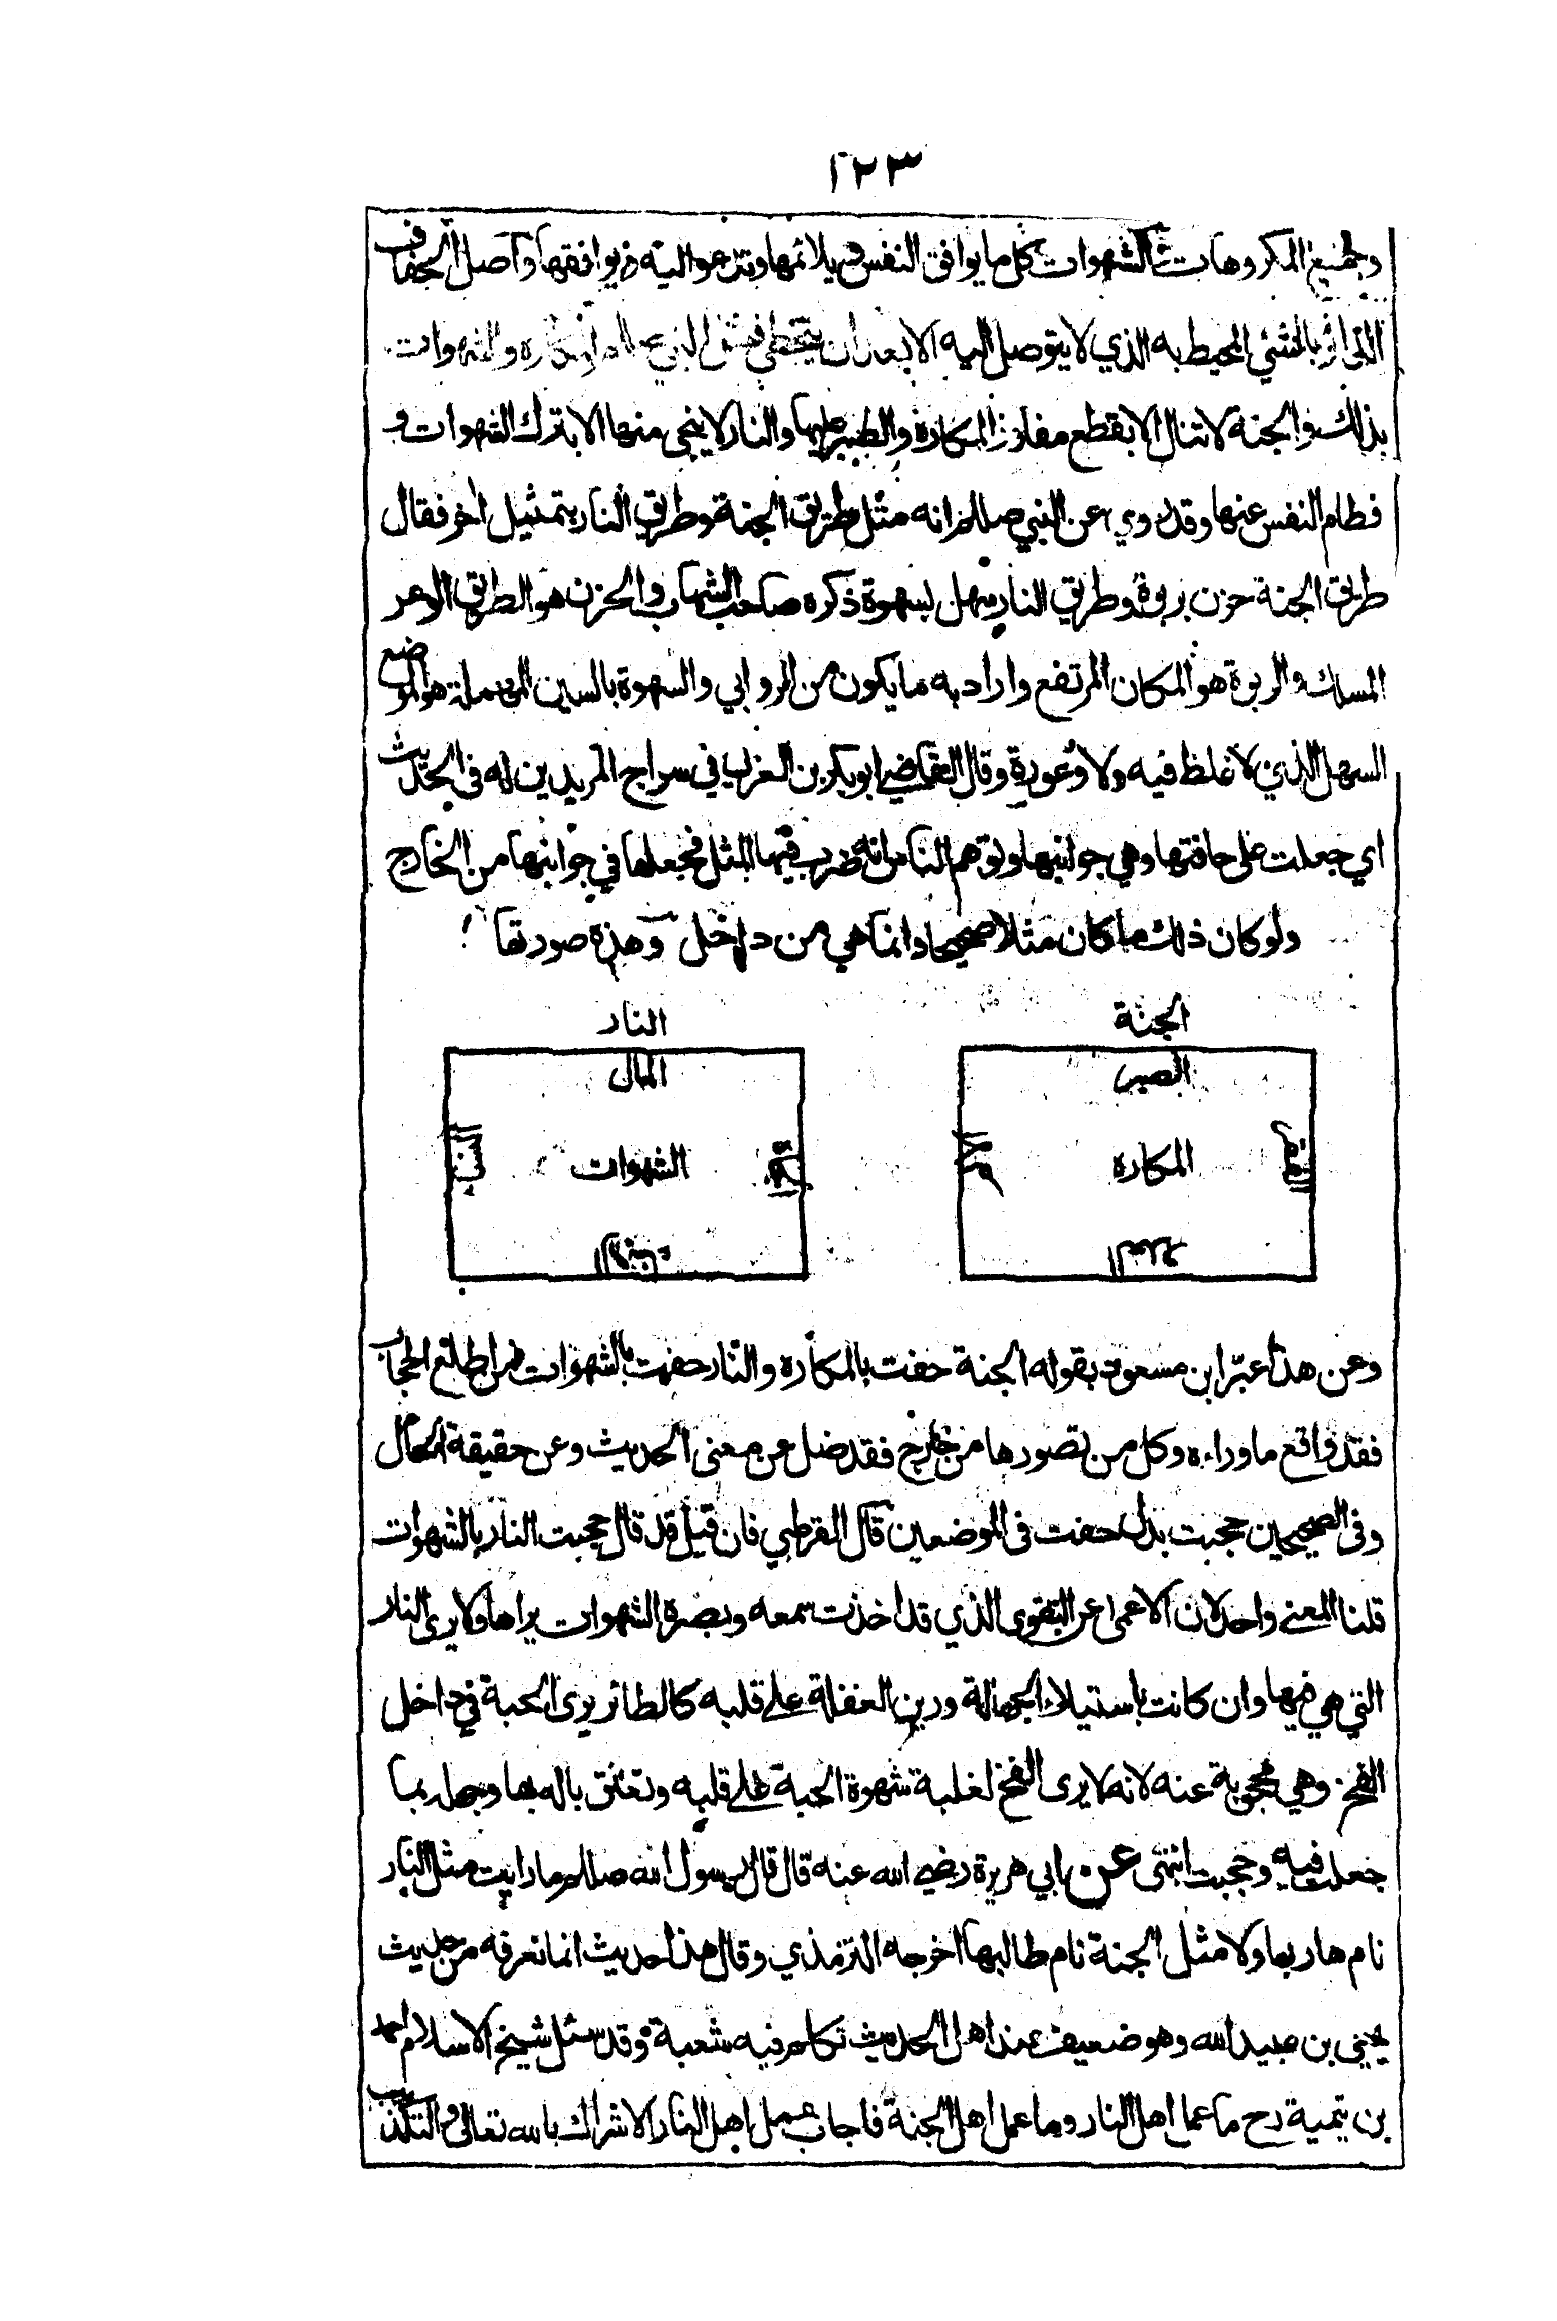 ١٢٣
وجميع المكروهات والشهوات كل ما يوافق النفس ويلائمها وتدعو اليه ويوافقها واصل الحفاف
الدائر بالشئي المحيط به الذي لا يتوصل اليه الا بعد ان يتخطى فمثل النبي المكاره والشهوات
بذلك والجنة لا تنال الا بقطع مفاوز المكاره والصبر عليها والنار لا ينجى منها الا بترك الشهوات و
فطام النفس عنها وقد روي عن النبي صللم انه مثل طريق الجنة وطريق النار بتمثيل اخر فقال
طريق الجنة حزن بربوة وطريق النار سهل بسهوة ذكره صاحب الشهاب والحزن هو الطريق الوعر
المسلك والربوة هو المكان المرتفع واراد به ما يكون من الروابي والسهوة بالسين المهملة هو الموضع
السهل الذي لا غلظ فيه ولا وعورة وقال القاضي ابوبكر بن العربي في سراج المريدين له في الحديث
اي جعلت على حافتها وهي جوانبها وتوهم الناس انه ضرب فيها المثل فجعلها في جوانبها من الخارج
ولو كان ذلك ما كان مثلا صحيحا وانما هي من داخل وهذه صورتها
الجنة
النار
الصبر
المال
المكاره
الشهوات
وعن هذا عبّر ابن مسعود بقوله الجنة حفت بالمكاره والنار حفت بالشهوات فمن اطلع الحجاب
فقد واقع ما وراءه وكل من تصورها من خارج فقد ضل عن معنى الحديث وعن حقيقة الحال
وفي الصحيحين حجبت بدل حفت في الموضعين قال القرطبي فان قيل قد قال حجبت النار بالشهوات
قلنا المعنى واحد لان الاعمى عن التقوى الذي قد اخذت سمعه وبصره الشهوات يراها ولا يرى النار
التي هي فيها وان كانت باستيلاء الجهالة ورين الغفلة على قلبه كالطائر يرى الحبة في داخل
الفخ وهي محجوبة عنه لانه لا يرى الفخ لغلبة شهوة الحبة على قلبه وتعلق باله بها وجهله بما
جعلت فيه وحجبت انتهى عن ابي هريرة رضي الله عنه قال قال رسول الله صللم ما رايت مثل النار
نام هاربها ولا مثل الجنة نام طالبها اخرجه الترمذي وقال هذا حديث انما نعرفه من حديث
يحيى بن عبيد الله وهو ضعيف عند اهل الحديث تكلم فيه شعبة وقد سئل شيخ الاسلام احمد
بن تيمية رح ما عمل اهل النار وما عمل اهل الجنة فاجاب عمل اهل النار الاشراك بالله تعالى والتكذيب